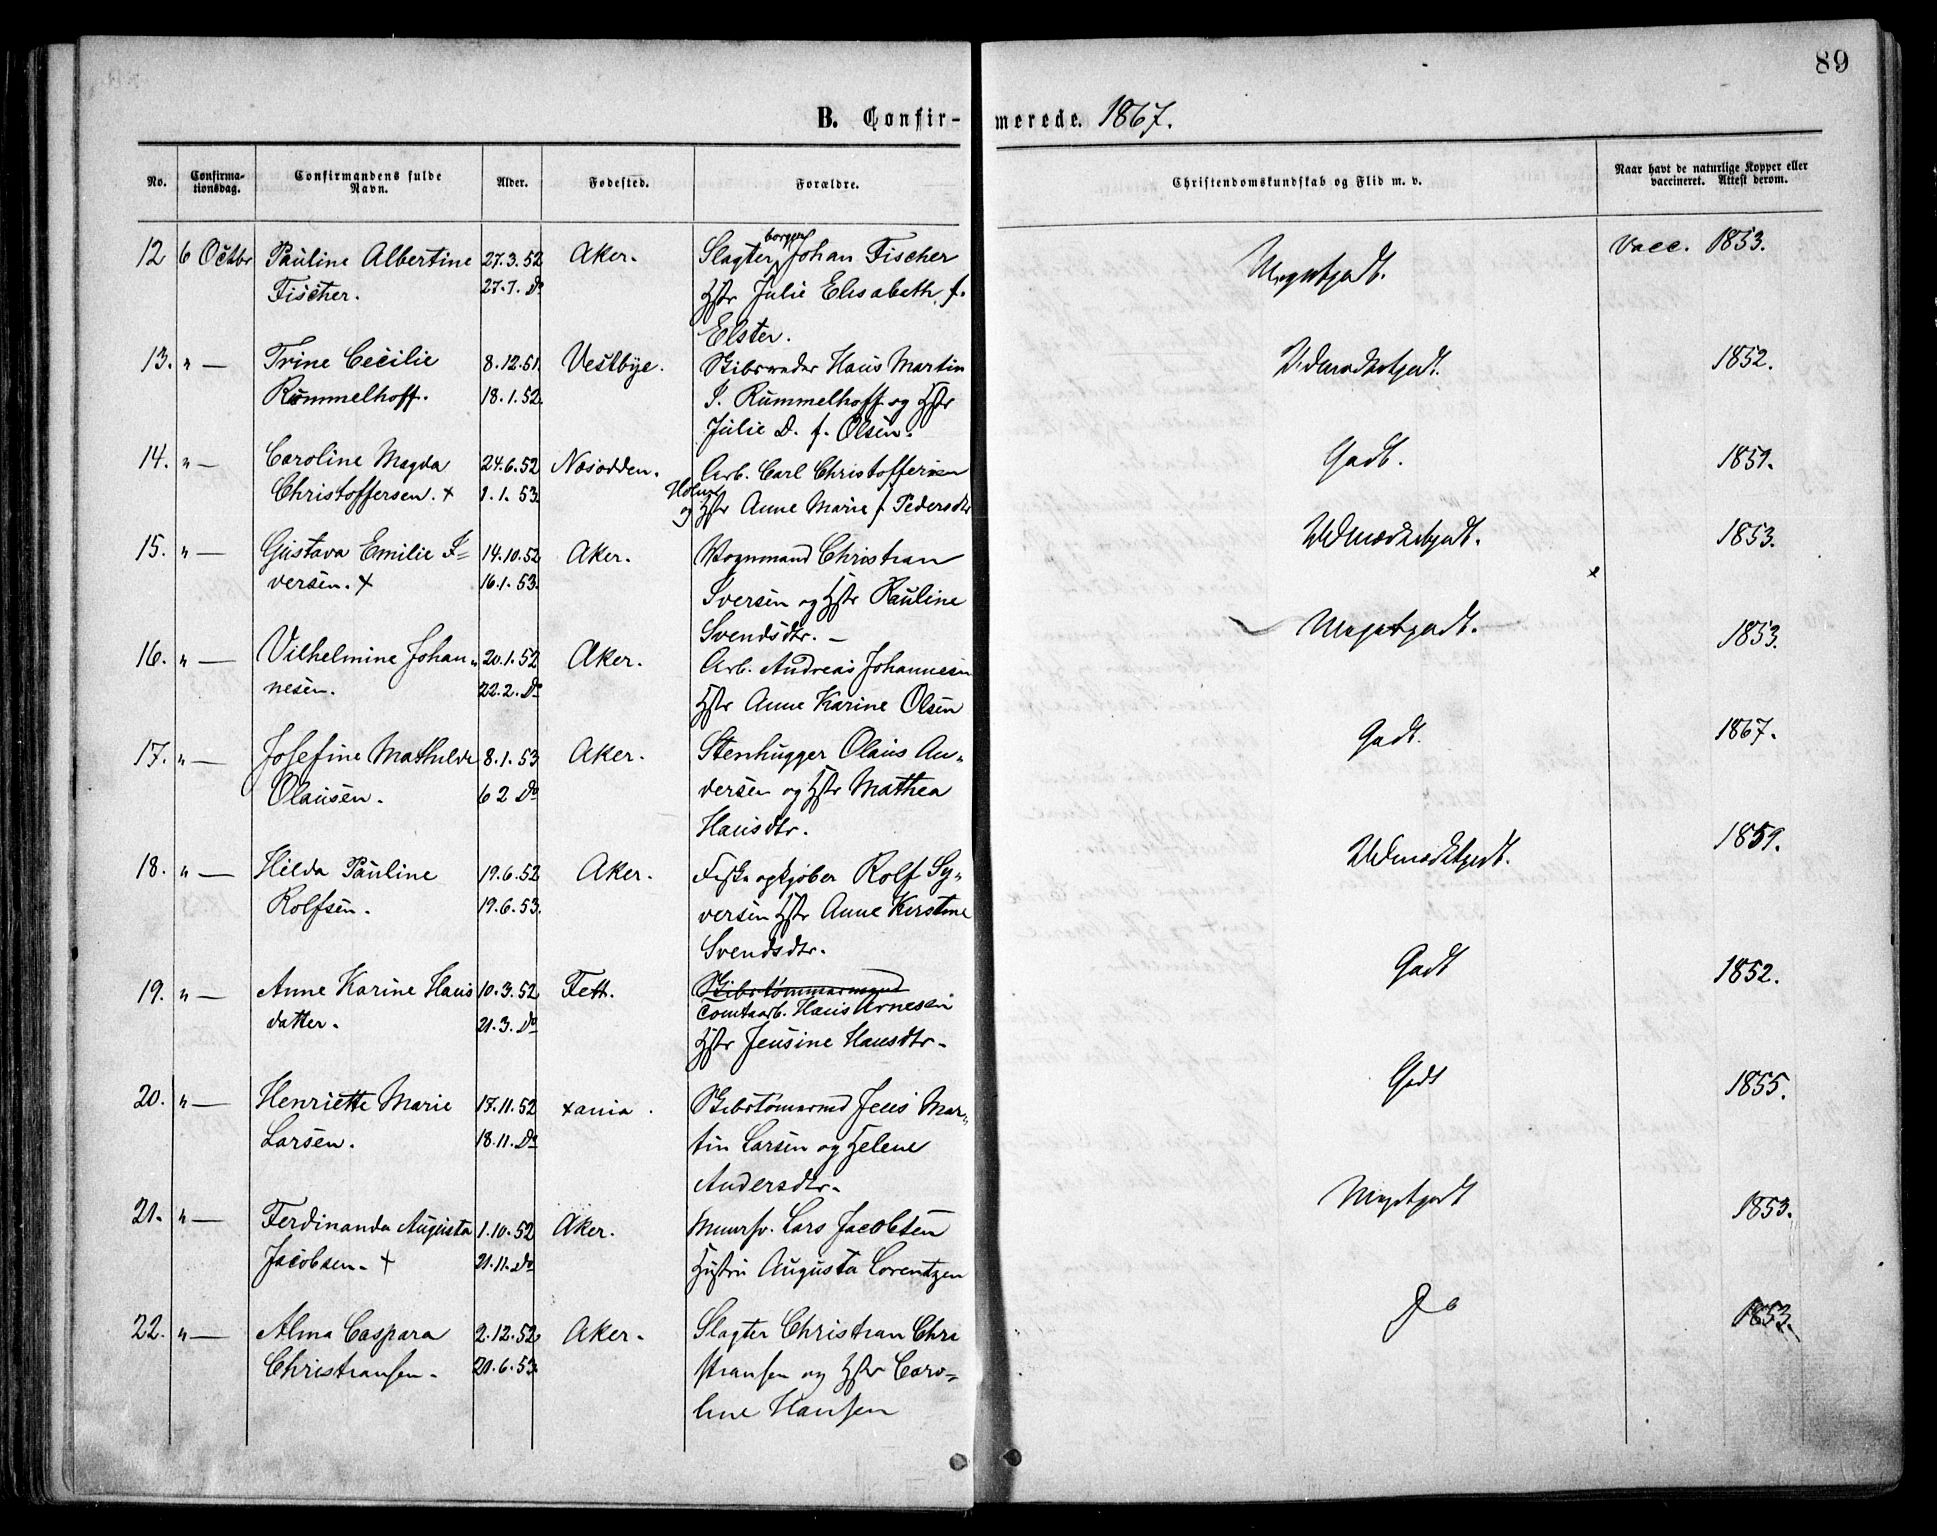 89
B. Confir- merede. 1867.
No. Confirma-tionsdag. Confirmandens fulde Navn. Alder. Fødested. Forældre. Christendomskundskab og Flid m. v. Naar havt de naturlige Kopper eller vaccineret. Attest derom.
12 6 Octbr Pauline Albertine 27.3.52 Aker. Slagterborger Johan Fischer Megetgodt. Vacc. 1853.
Fischer. 27.7. Do Hstr Julie Elisabeth f.
Elster.
13. " — Trine Cecilie 8.12.51. Vestbye. Hans Martin Udmærketgodt. 1852.
Rummelhoff. 18.1.52. J. Rummelhoff og Hstr
Julie D. f. Olsen.
14. " — Caroline Magda 24.6.52 Næsodden. Arb. Carl Christoffersen Godt. 1859.
Christoffersen. + 1.1.53 Holm og Hstr Anne Marie f Pedersdtr
15. " — Gustava Emilie I= 14.10.52 Aker. Vognmand Christian Udmærketgodt. 1853.
versen. + 16.1.53. Iversen og Hstr Pauline
Svendsdtr. —
16. " — Vilhelmine Johan- 20.1.52 Aker. Arb. Andreas Johannesen Megetgodt. 1853.
nesen. 22.2. Do Hstr Anne Karine Olsen
17. " — Josefine Mathilde 8.1.53 Aker. Stenhugger Olaus An= Godt. 1867.
Olausen. 6 2 Do dersen og Hstr Mathea
Hansdtr.
18. " — Hilda Pauline 19.6.52 Aker. Fiskeopkjøber Rolf Sy= Udmærketgodt. 1859.
Rolfsen. 19.6.53. versen Hstr Anne Kirstine
Svendsdtr.
19. " — Anne Karine Hans 10.3.52 Fett. Skibstømmermand Godt 1852.
datter. 21.3. Do Tomtearb. Hans Arnesen
Hstr Jensine Hansdtr.
20. " — Henriette Marie 17.11.52 Xania. Skibstømmermd Jens Mar= Godt 1855.
Larsen. 18.11. Do tin Larsen og Helene
Andersdtr.
21. " — Ferdinanda Augusta 1.10.52 Aker. Muursv. Lars Jacobsen Megetgodt 1853.
Jacobsen. + 21.11. Do Hustru Augusta Lorentzen
22. " — Alma Caspara 2.12.52. Aker. Slagter Christian Chri Do 1853.
Christiansen. 20.6.53. stiansen og Hstr Caro=
line Hansen